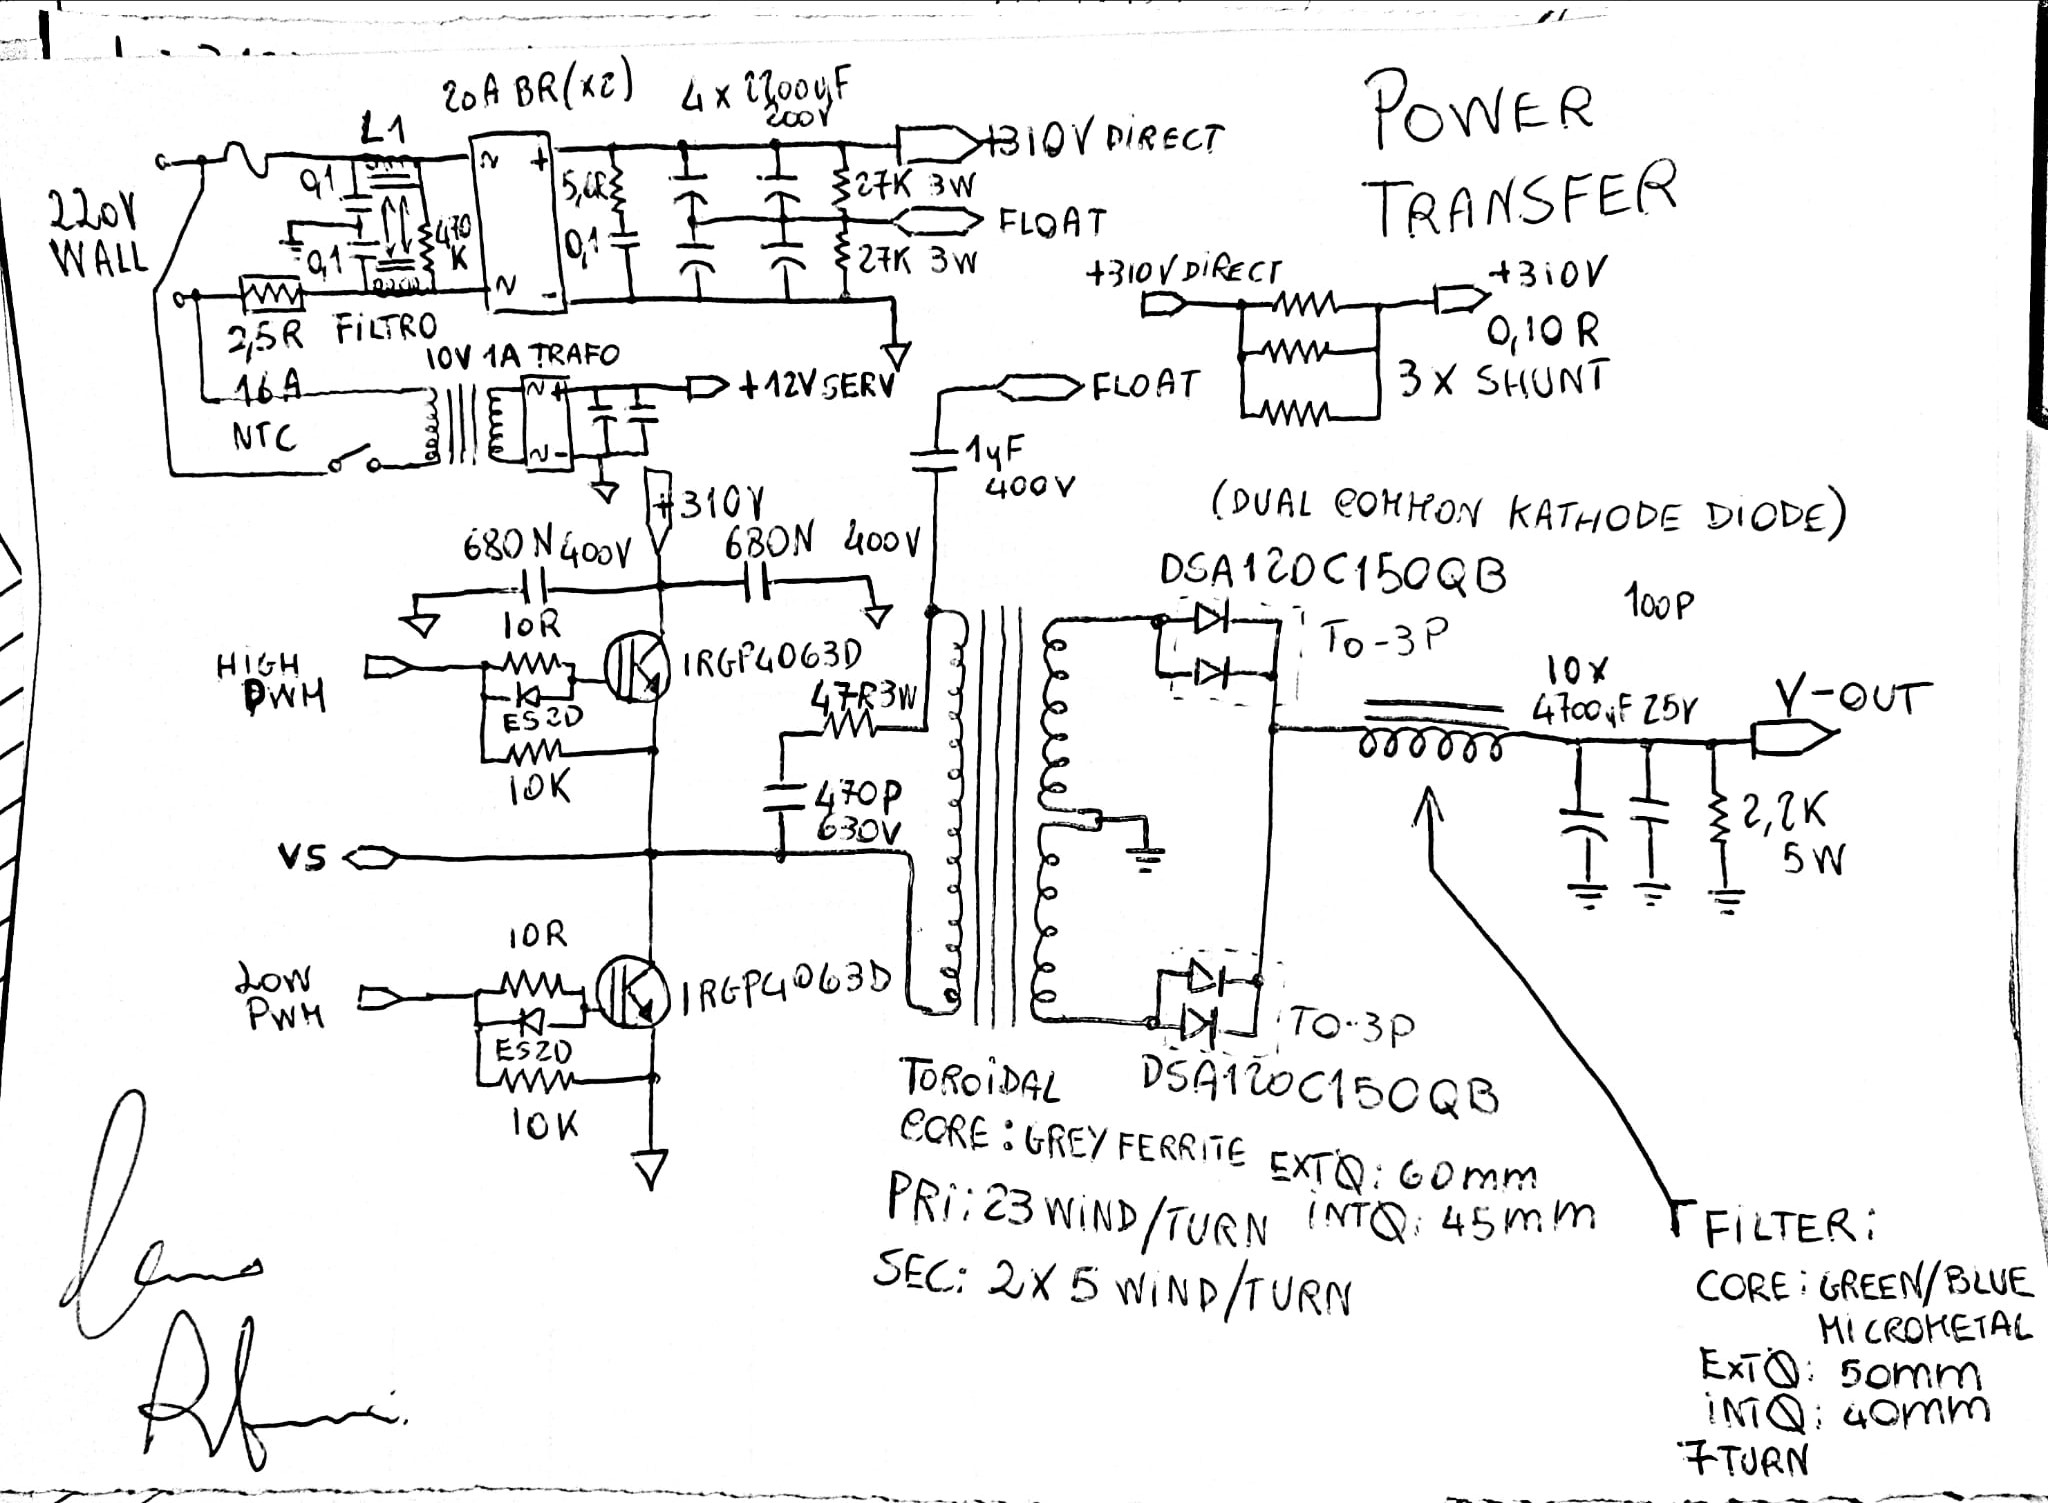 20A BR(x2)
4 x 2200uF
200V
L1
POWER
TRANSFER
220V
WALL
0,1
0,1
470
K
~
+
~
-
0,1
27K 3W
27K 3W
+310V DiRECT
FLOAT
2,5R
FiLTRO
16A
NTC
10V 1A TRAFO
~ +
~ -
+12V SERV
+310V DiRECT
+3i0V
0,10R
3 X SHUNT
FLOAT
1µF
400V
+310V
680N 400V
680N 400V
(DUAL COMMON KATHODE DIODE)
DSA120C150QB
TO-3P
100P
10x
4700µF 25V
V-OUT
2,2K
5W
HIGH
PWM
10R
ES2D
10K
IRGP4063D
47R3W
470P
630V
VS
LOW
PWM
10R
ES2D
10K
IRGP4063D
TO-3P
DSA120C150QB
TOROiDAL
CORE: GREY FERRITE EXTØ: 60mm
PRi: 23 WiND/TURN iNTØ: 45mm
SEC: 2X5 WiND/TURN
FiLTER:
CORE: GREEN/BLUE
MICROMETAL
EXTØ: 50mm
iNTØ: 40mm
7 TURN